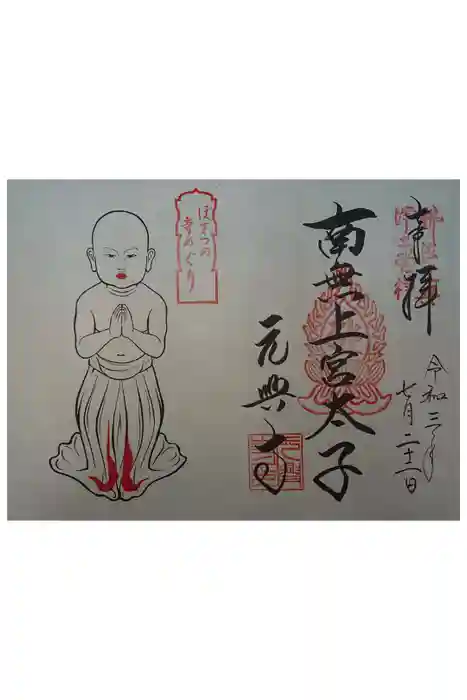 奉拝
令和三年
七月二十一日
南無上宮太子
元興寺
ぼさつの
寺めぐり